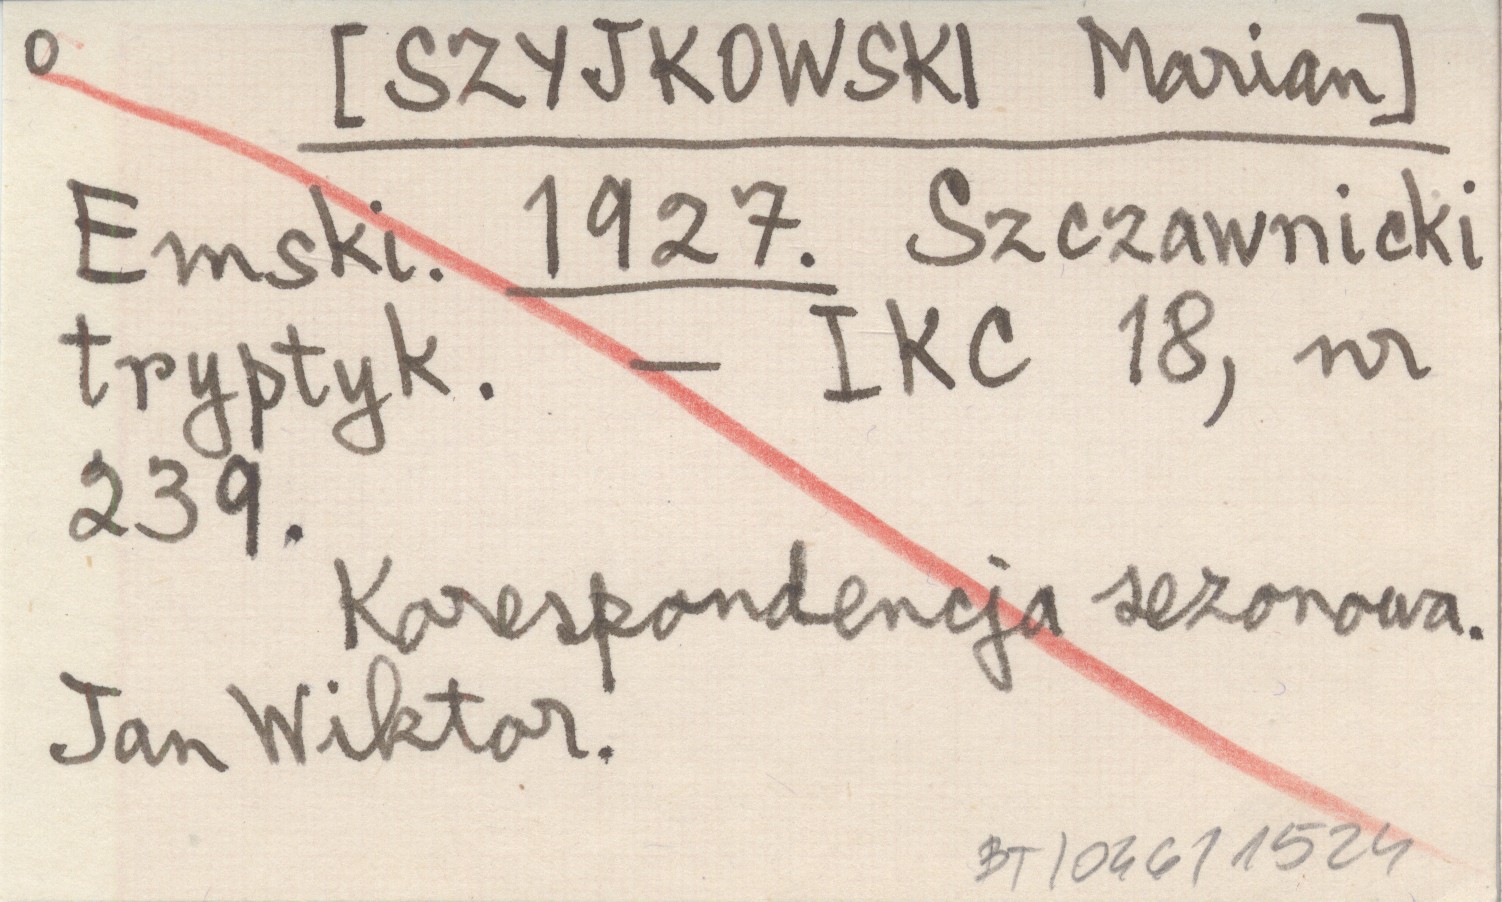 o [SZYJKOWSKI Marian]
Emski. 1927. Szczawnicki
tryptyk. — IKC 18, nr
239.
Korespondencja sezonowa.
Jan Wiktor.
BT/046/1524